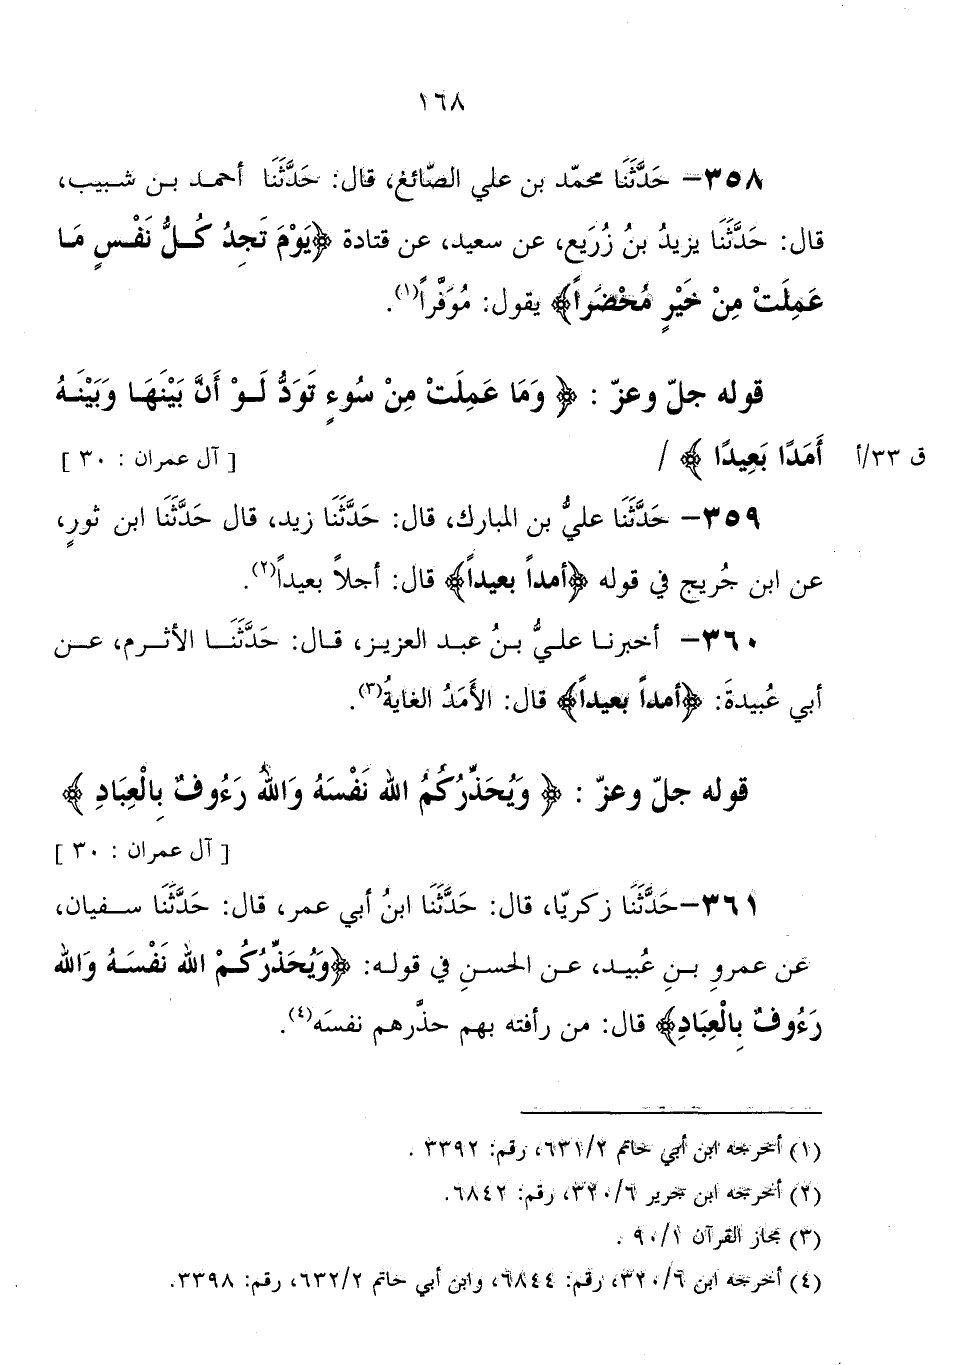 ١٦٨
٣٥٨– حَدَّثَنَا محمّد بن علي الصّائغ، قال: حَدَّثَنَا أحمـد بـن شـبيب،
قال: حَدَّثَنَا يزيدُ بنُ زُرَيع، عن سعيد، عن قتادة ﴿يَوْمَ تَجِدُ كُـلُّ نَفْـسٍ مَـا
عَمِلَتْ مِنْ خَيْرٍ مُحْضَراً﴾ يقول: مُوَفَّراً(١).
قوله جلّ وعزّ : ﴿ وَمَا عَمِلَتْ مِنْ سُوءٍ تَوَدُّ لَـوْ أَنَّ بَيْنَهَـا وَبَيْنَـهُ
أَمَدًا بَعِيدًا ﴾ / [ آل عمران : ٣٠ ]
ق ٣٣/أ
٣٥٩– حَدَّثَنَا عليُّ بن المبارك، قال: حَدَّثَنَا زيد، قال حَدَّثَنَا ابن ثورٍ،
عن ابن جُريج في قوله ﴿أمداً بعيداً﴾ قال: أجلاً بعيداً(٢).
٣٦٠– أخبرنـا علـيُّ بـنُ عبـد العزيـز، قـال: حَدَّثَنَـا الأثـرم، عـن
أبي عُبيدةَ: ﴿أمداً بعيداً﴾ قال: الأَمَدُ الغايةُ(٣).
قوله جلّ وعزّ : ﴿ وَيُحَذِّرُكُمُ الله نَفْسَهُ وَاللهُ رَءُوفٌ بِالْعِبَادِ ﴾
[ آل عمران : ٣٠ ]
٣٦١–حَدَّثَنَا زكريّا، قال: حَدَّثَنَا ابنُ أبي عمر، قال: حَدَّثَنَا سـفيان،
عن عمرو بـنِ عُبيـد، عـن الحسـنِ في قولـه: ﴿وَيُحَذِّرُكُـمْ الله نَفْسَـهُ وَالله
رَءُوفٌ بِالْعِبَادِ﴾ قال: من رأفته بهم حذَّرهم نفسَه(٤).
(١) أخرجه ابن أبي حاتم ٦٣١/٢، رقم: ٣٣٩٢ .
(٢) أخرجه ابن جرير ٣٢٠/٦، رقم: ٦٨٤٢.
(٣) مجاز القرآن ٩٠/١ .
(٤) أخرجه ابن ٣٢٠/٦، رقم: ٦٨٤٤، وابن أبي حاتم ٦٣٢/٢، رقم: ٣٣٩٨.